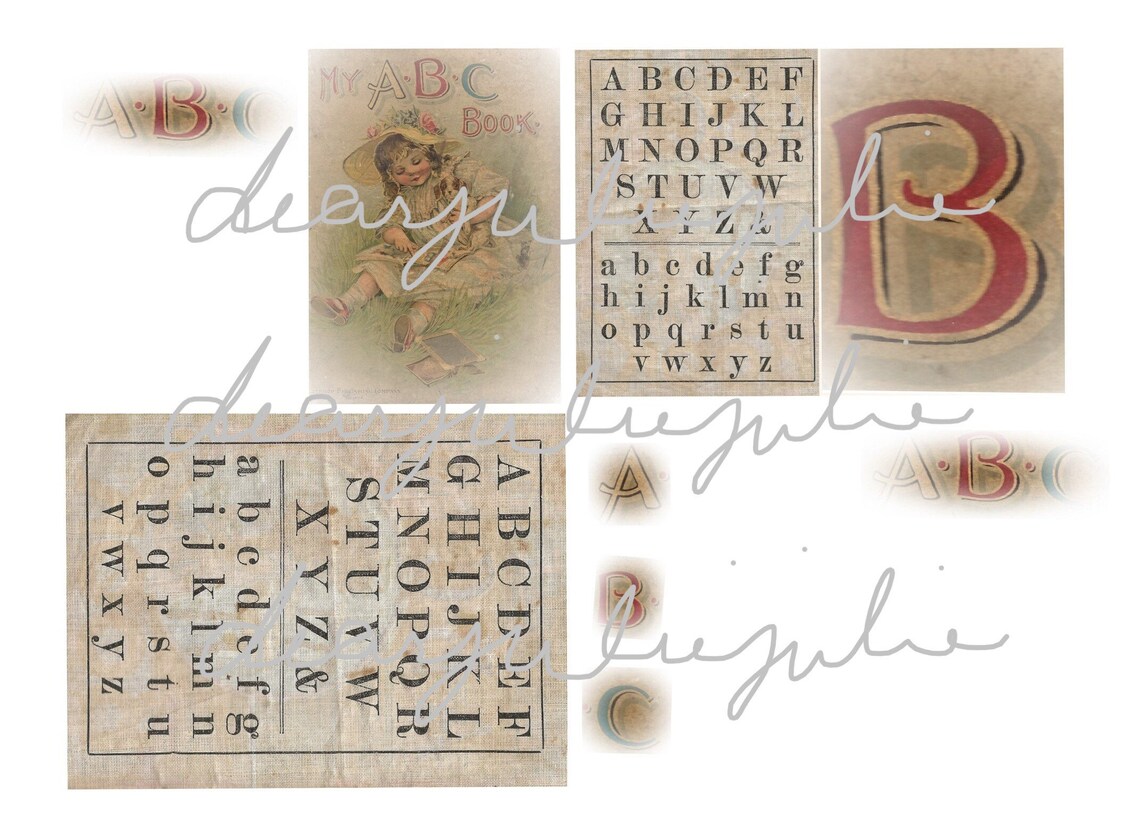 A·B·C
MY A·B·C
BOOK.
A B C D E F
G H I J K L
M N O P Q R
S T U V W
X Y Z &
a b c d e f g
h i j k l m n
o p q r s t u
v w x y z
B
dearjuliejulie
dearjuliejulie
A B C D E F
G H I J K L
M N O P Q R
S T U V W
X Y Z &
a b c d e f g
h i j k l m n
o p q r s t u
v w x y z
A·
A·B·C
B
C
dearjuliejulie